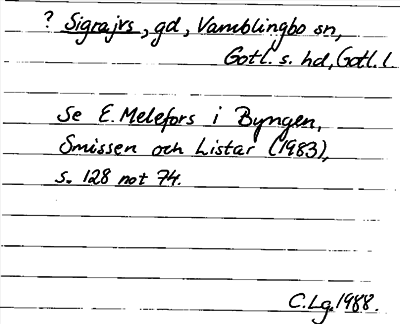 ? Sigrajvs, gd, Vamblingbo sn,
Gotl. s. hd, Gotl. l.
Se E. Melefors i Byngen,
Smissen och Listar (1983),
s. 128 not 74.
C.Lg. 1988.